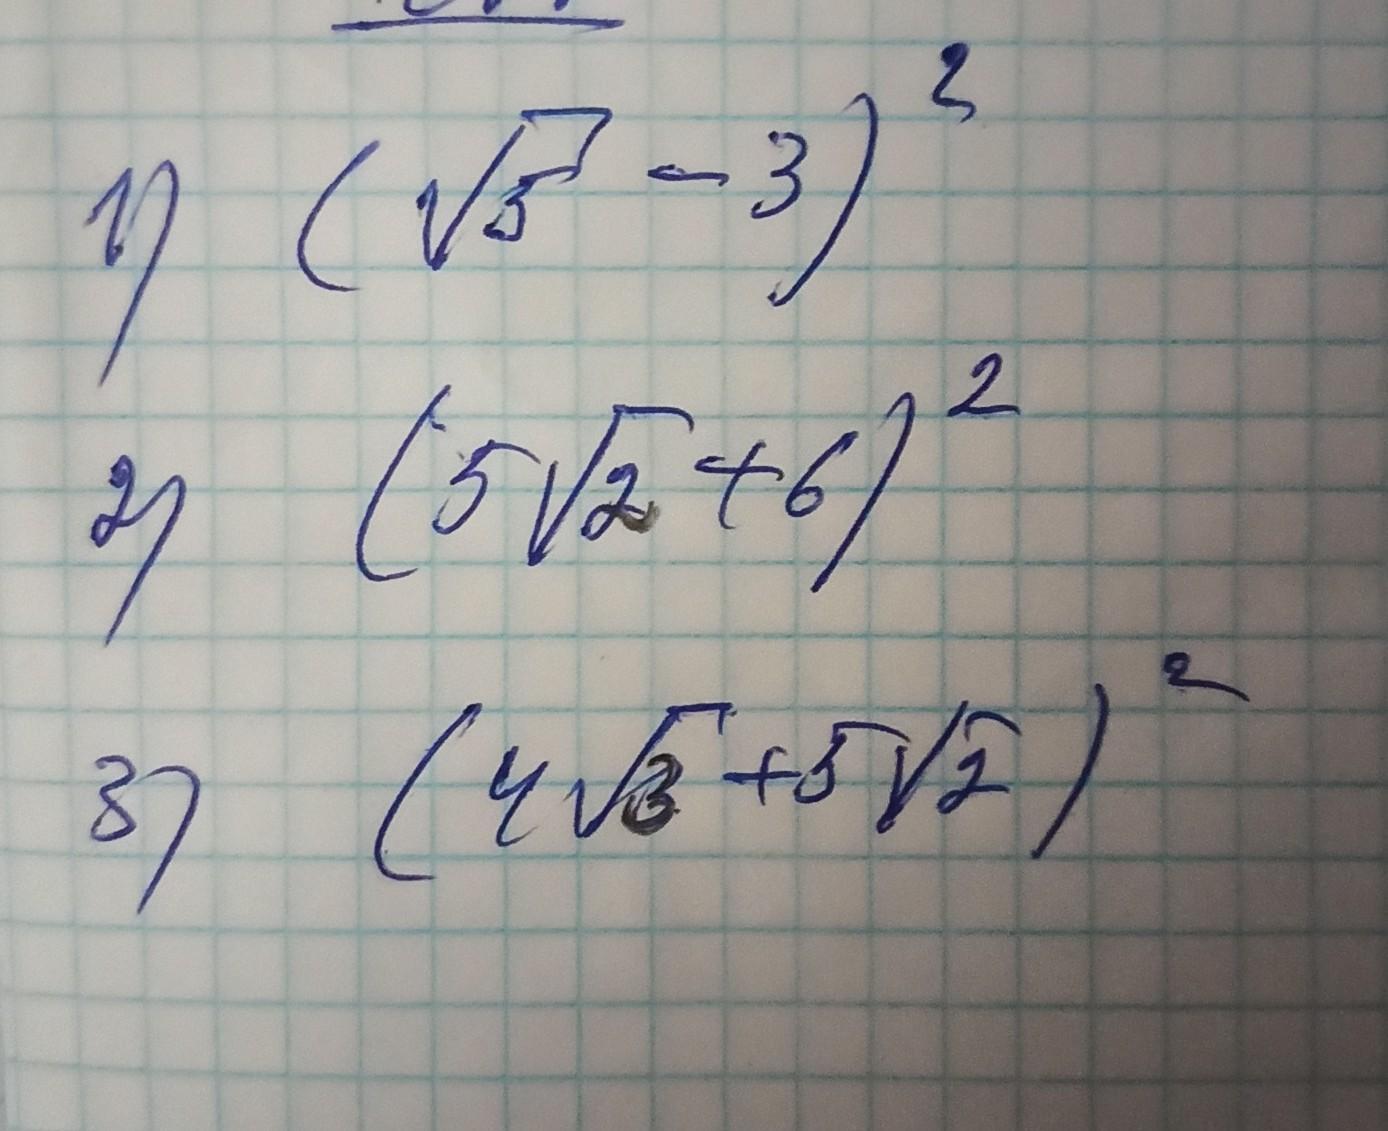 1) (√5 - 3)²
2) (5√2 + 6)²
3) (4√3 + 5√2)²